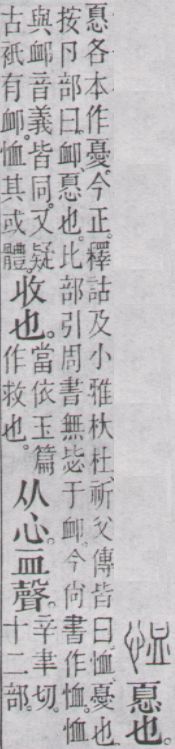 恤 𢝊也。
𢝊各本作憂。今正。釋詁及小雅杕杜、祈父傳皆曰。恤、憂也。
按卪部曰。卹、𢝊也。比部引周書無毖于卹。今尚書作恤。恤
與卹音義皆同。又疑
古衹有卹。恤其或體。
收也。
當依玉篇
作救也。
从心。血聲。
辛聿切。
十二部。